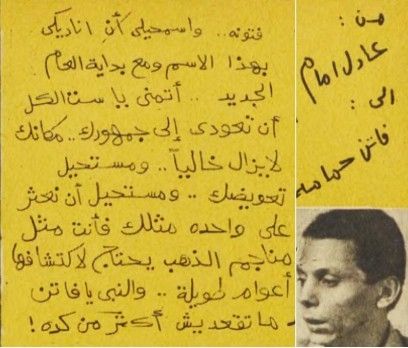 من :
عادل امام
الى :
فاتن حمامه
فتونه .. واسمحيلى أن اناديكى
بهذا الاسم ومع بداية العام
الجديد .. أتمنى يا ست الكل
أن تعودى إلى جمهورك .. مكانك
لايزال خالياً .. ومستحيل
تعويضك .. ومستحيل أن نعثر
على واحده مثلك فأنت مثل
مناجم الذهب يحتاج لاكتشافها
أعوام طويلة .. والنبى يا فاتن
ما تقعديش أكثر من كده !